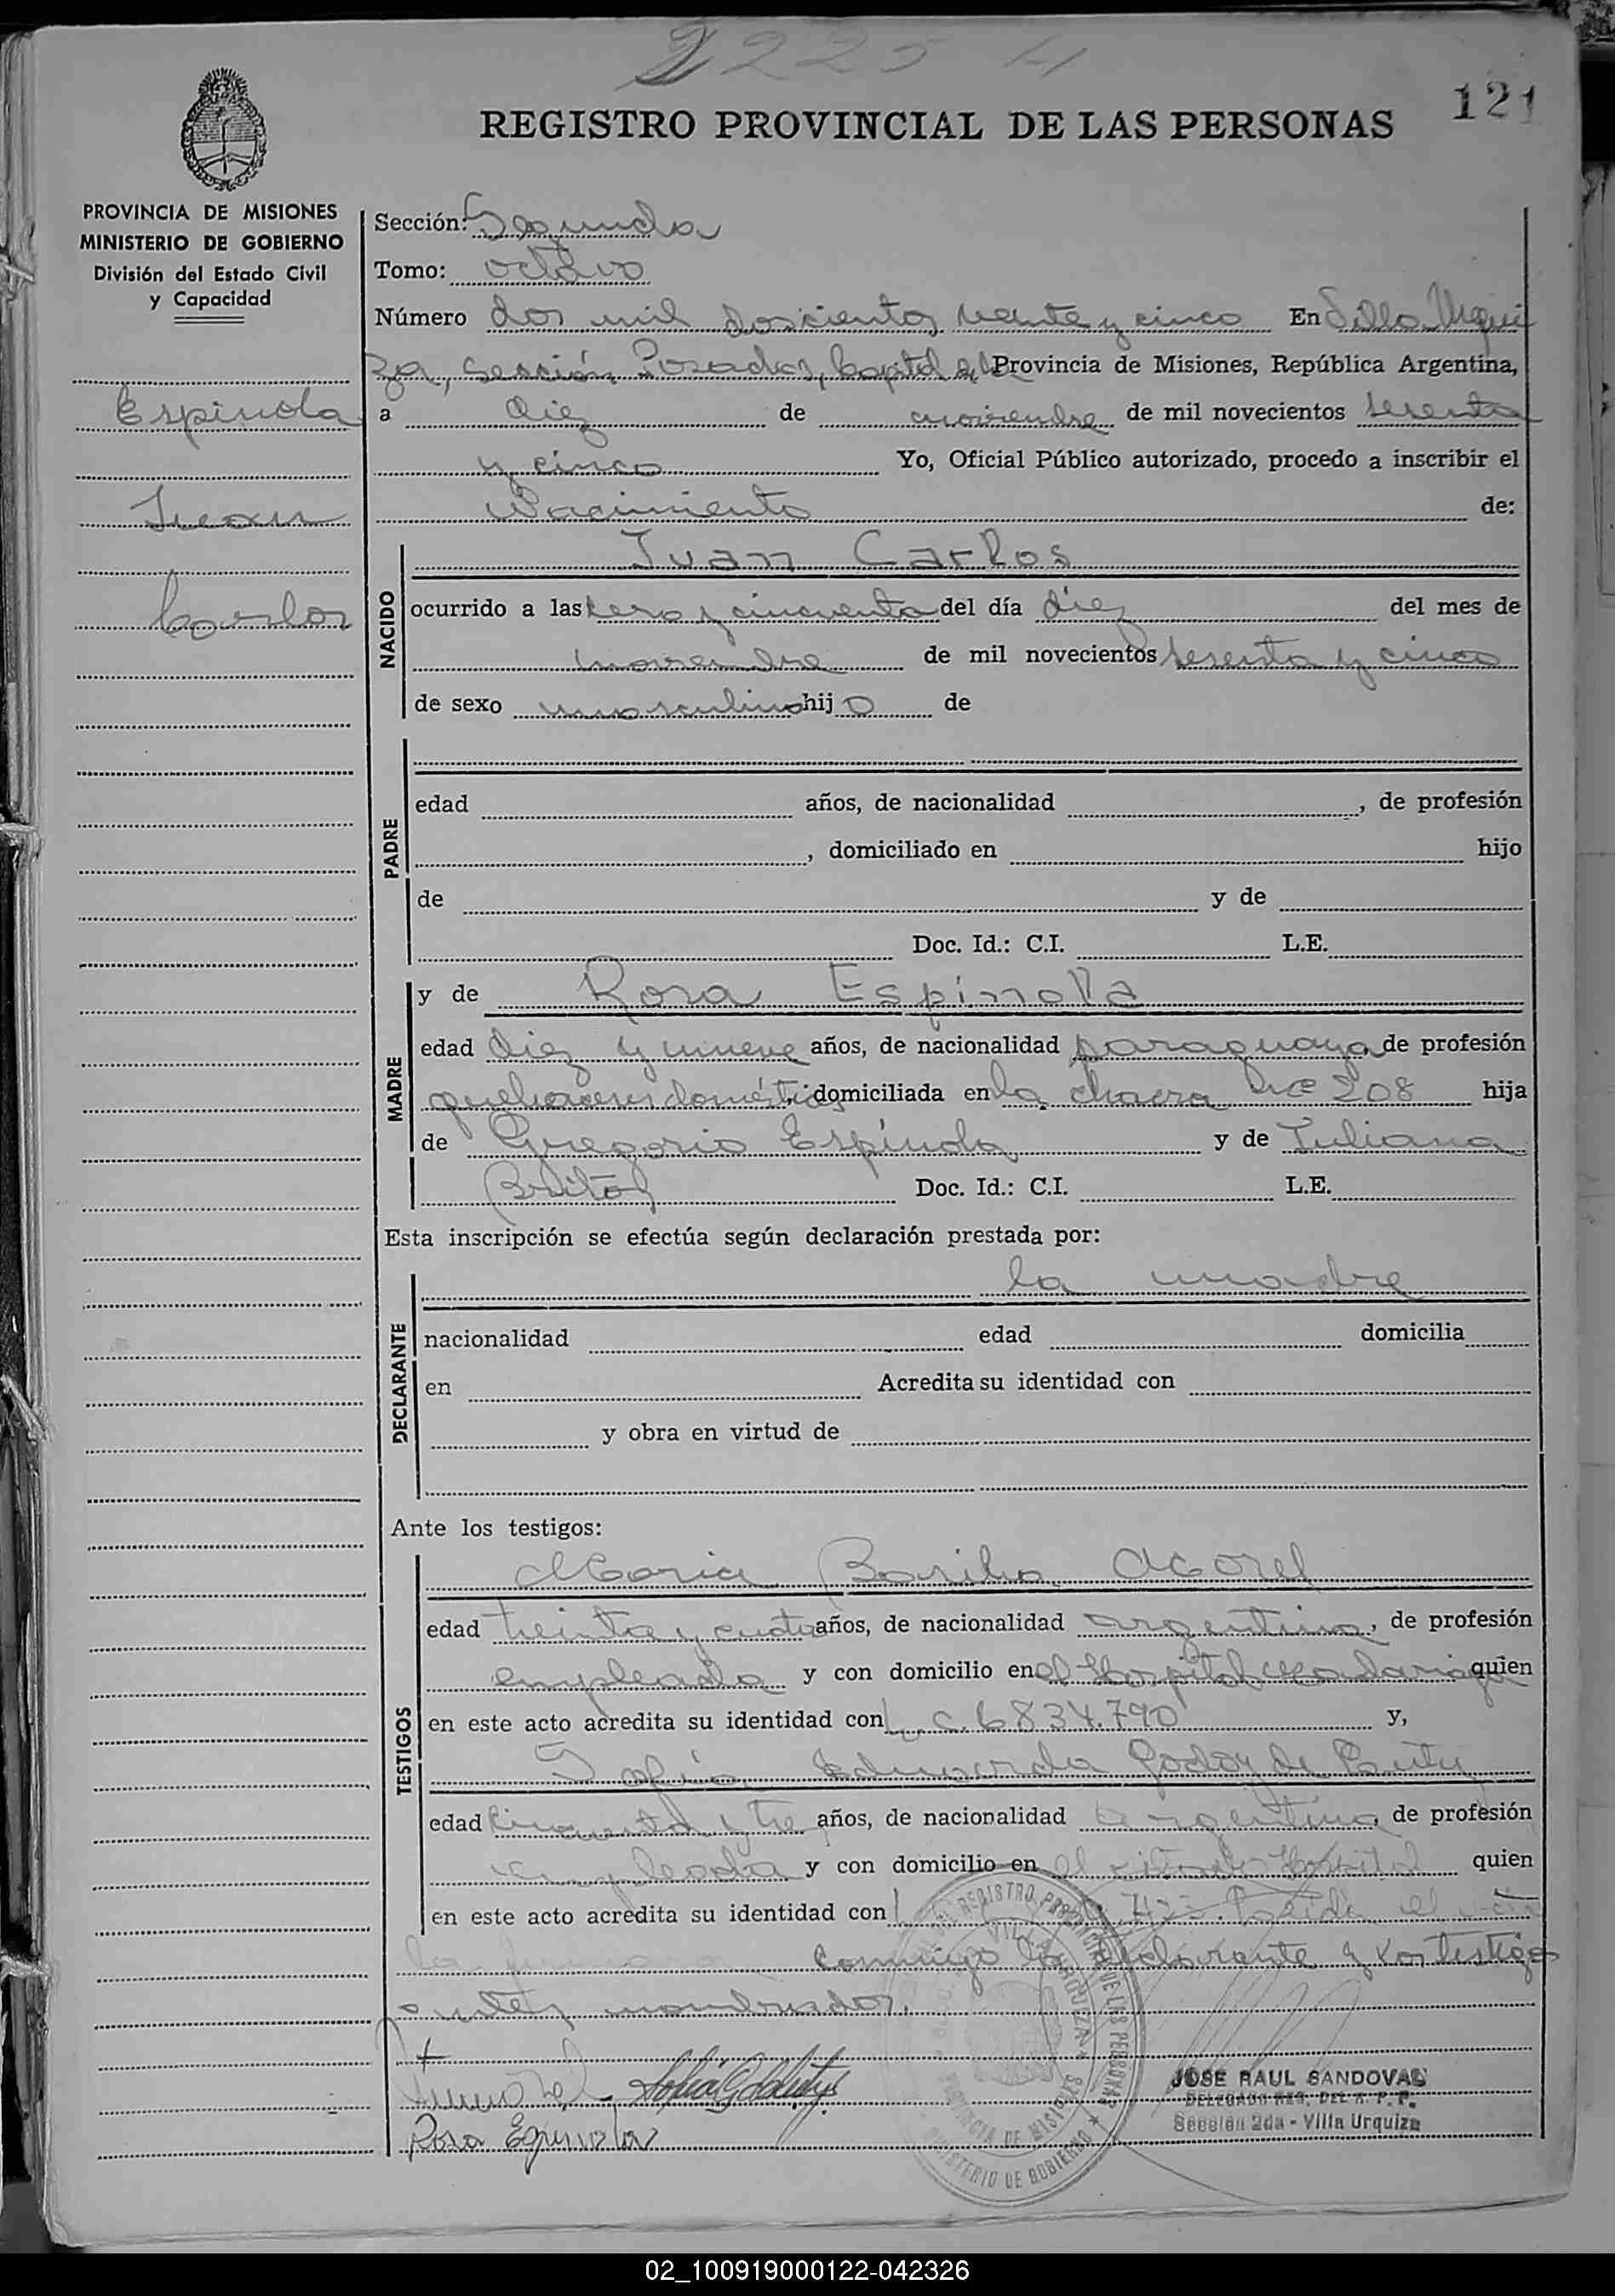 2225 H
121
REGISTRO PROVINCIAL DE LAS PERSONAS
PROVINCIA DE MISIONES
MINISTERIO DE GOBIERNO
División del Estado Civil
y Capacidad
Espinola
Juan
Carlos
Sección: Segunda
Tomo: octavo
Número dos mil doscientos veinte y cinco En Villa Urqui
za, Sección Posadas, Capital de la Provincia de Misiones, República Argentina,
a diez de noviembre de mil novecientos sesenta
y cinco Yo, Oficial Público autorizado, procedo a inscribir el
Nacimiento de:
NACIDO
Juan Carlos
ocurrido a las cero y cincuenta del día diez del mes de
noviembre de mil novecientos sesenta y cinco
de sexo masculino hijo de
PADRE
edad años, de nacionalidad , de profesión
, domiciliado en hijo
de y de
Doc. Id.: C.I. L.E.
MADRE
y de Rosa Espinola
edad diez y nueve años, de nacionalidad paraguaya, de profesión
quehaceres domésticos, domiciliada en la chacra nro 208 hija
de Gregorio Espínola y de Juliana
Brítez Doc. Id.: C.I. L.E.
Esta inscripción se efectúa según declaración prestada por:
DECLARANTE
la madre
nacionalidad edad domicilia
en Acredita su identidad con
y obra en virtud de
Ante los testigos:
TESTIGOS
Maria Basilia Morel
edad treinta y cuatro años, de nacionalidad argentina, de profesión
empleada y con domicilio en el Hospital Madariaga quien
en este acto acredita su identidad con L.C. 6834.790 y,
Sofia Eduarda Godoy de
edad cincuenta y tres años, de nacionalidad argentina, de profesión
empleada y con domicilio en el citado Hospital quien
en este acto acredita su identidad con L 423. Leida el acta
la firman conmigo la declarante y los testigos
antes nombrados.
Rosa Espinola
REGISTRO PROVINCIAL DE LAS PERSONAS
VILLA URQUIZA
PROVINCIA DE MISIONES
MINISTERIO DE GOBIERNO
JOSE RAUL SANDOVAL
DELEGADO REG. DEL R. P. P.
Sección 2da - Villa Urquiza
02_100919000122-042326